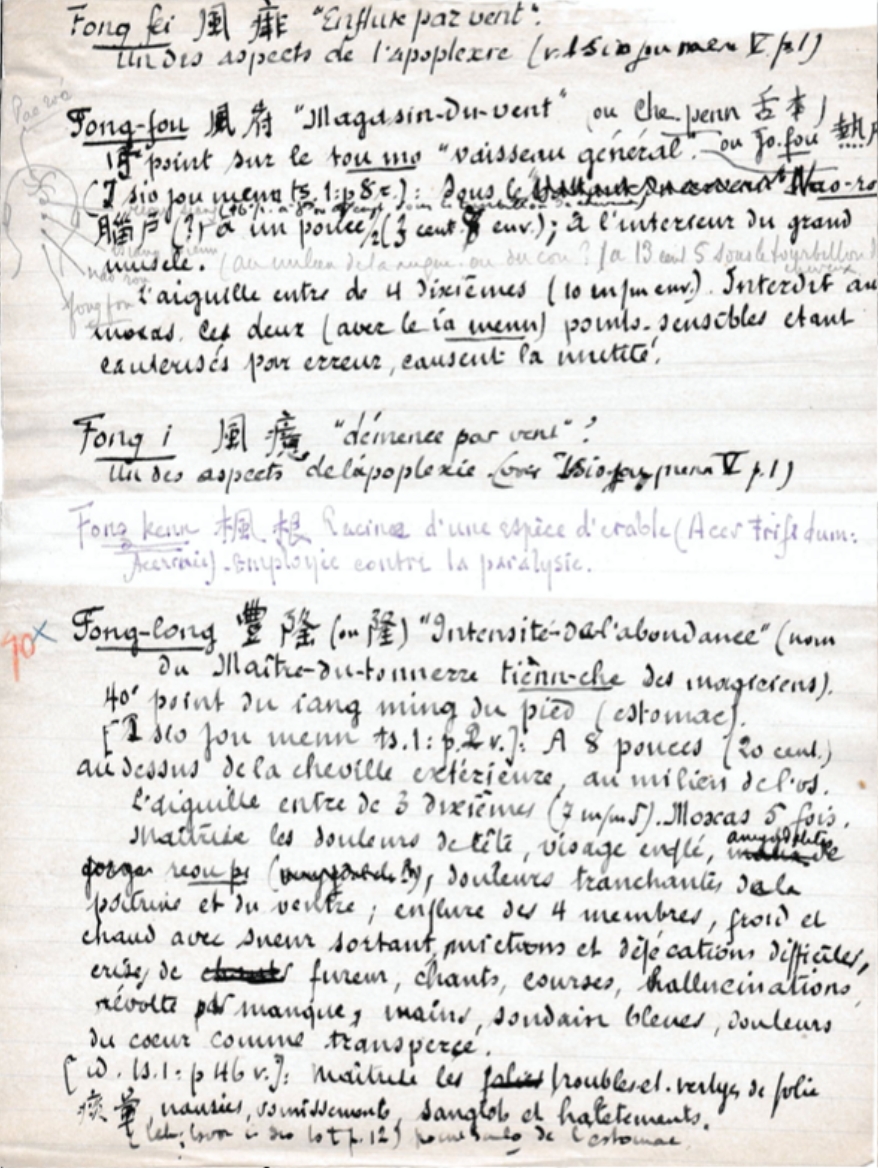 Fong fei 風 痱 "Enflure par vent".
Un des aspects de l'apoplexie (v. Tsio jou menn V. p.1)
Pao roá
Fong-fou 風 府 "Magasin-du-vent" (ou Che-penn 舌本)
ou Jo.fou 熱
point sur le tou mo "vaisseau général".
(I sio jou menn ts.1: p 8 r.): Sous le Nao-ro
腦戶 (?) à un pouce 1/2 (3 cent. env.); à l'interieur du grand
muscle. (au milieu de la nuque ou du cou? / à 13 cent 5 sous le tourbillon de
cheveux
nao rou
fong fou
L'aiguille entre de 4 dixièmes (10 m/m env.). Interdit au
moxas. Ces deux (avec le ia menn) points sensibles etant
cauterisés par erreur, causent la mutité.
Fong i 風 "démence par vent"?
Un des aspects de l'apoplexie (voir Isio jou menn V p.1)
Fong kenn 楓 根 Racine d'une espèce d'erable (Acer Trifidum:
). Employée contre la paralysie.
40 x
Fong-long 豐 隆 (ou 隆) "Intensité-de-l'abondance" (nom
du Maître-du-tonnerre tienn-che des magiciens).
40e point du iang ming du pied (estomac).
[I sio jou menn ts.1: p.2 v.]: A 8 pouces (20 cent.)
au dessus de la cheville extérieure, au milieu de l'os.
L'aiguille entre de 3 dixièmes (7 m/m 5). Moxas 5 fois.
Maîtrise les douleurs de tête, visage enflé, amygdalite
gorge reou pi, douleurs tranchantes de la
poitrine et du ventre; enflure des 4 membres, froid et
chaud avec sueur sortant, mictions et déjécations difficiles,
crises de fureur, chants, courses, hallucinations,
révolte par manque, mains, soudain bleues, douleurs
du coeur comme transpercé.
[id. ts.1: p 46 v.]: Maîtrise les troubles et vertiges de folie
痰暈, nausées, vomissements, sanglots et halètements.
p.12) de l'estomac.